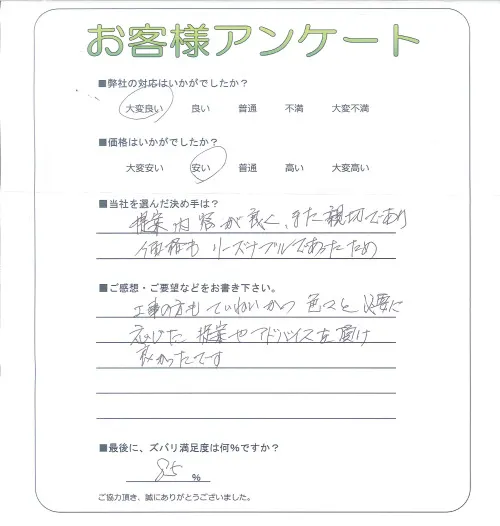 お客様アンケート
■弊社の対応はいかがでしたか？
大変良い 良い 普通 不満 大変不満
■価格はいかがでしたか？
大変安い 安い 普通 高い 大変高い
■当社を選んだ決め手は？
提案内容が良く、また親切であり
価格も リーズナブルであったため
■ご感想・ご要望などをお書き下さい。
工事の方も ていねいかつ 色々と 必要に
応じた 提案やアドバイスを頂け
良かったです
■最後に、ズバリ満足度は何%ですか？
85 %
ご協力頂き、誠にありがとうございました。